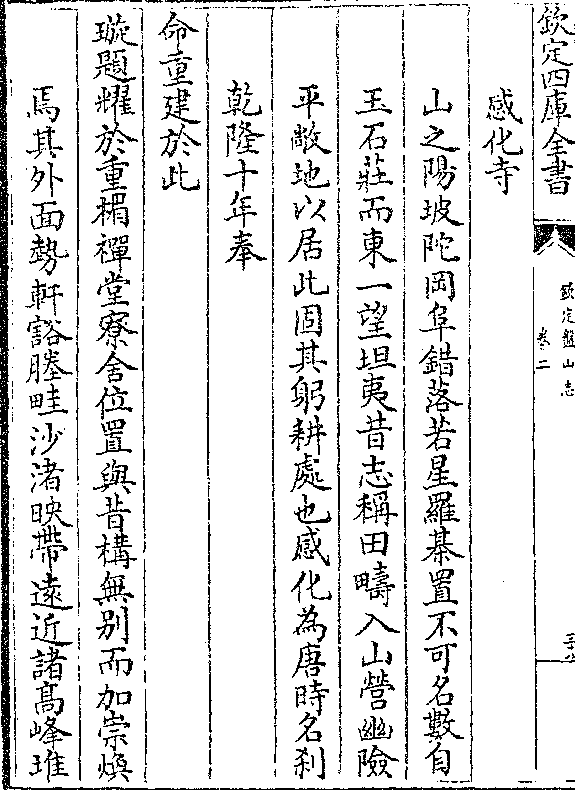 欽定四庫全書
欽定盤山志
卷二
感化寺
山之陽坡陀岡阜錯落若星羅棊置不可名數自
玉石莊而東一望坦夷昔志稱田疇入山營幽險
平敞地以居此固其躬耕處也感化為唐時名刹
乾隆十年奉
命重建於此
璇題耀於重楣禪堂寮舍位置與昔構無别而加崇煥
焉其外面勢軒豁塍畦沙渚映帶遠近諸髙峰堆